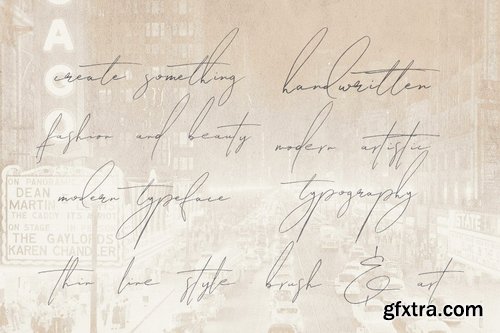 CAGO
create something handwritten
fashion and beauty modern artistic
modern typeface typography
thin line style brush & art
ON PANORAMIC
DEAN
MARTIN
THE CADDY IT'S A RIOT
ON STAGE IN
THE GAYLORDS
KAREN CHANDLER
STATE
gfxtra.com